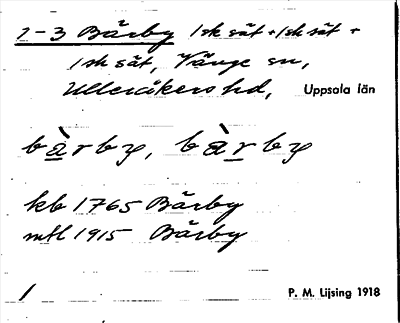 1-3 Bärby 1 sk sät + 1 sk sät +
1 sk sät, Vänge sn,
Ulleråkers hd, Uppsala län
bàrby, bàrby
kb 1765 Bärby
mtl 1915 Bärby
1 P. M. Lijsing 1918